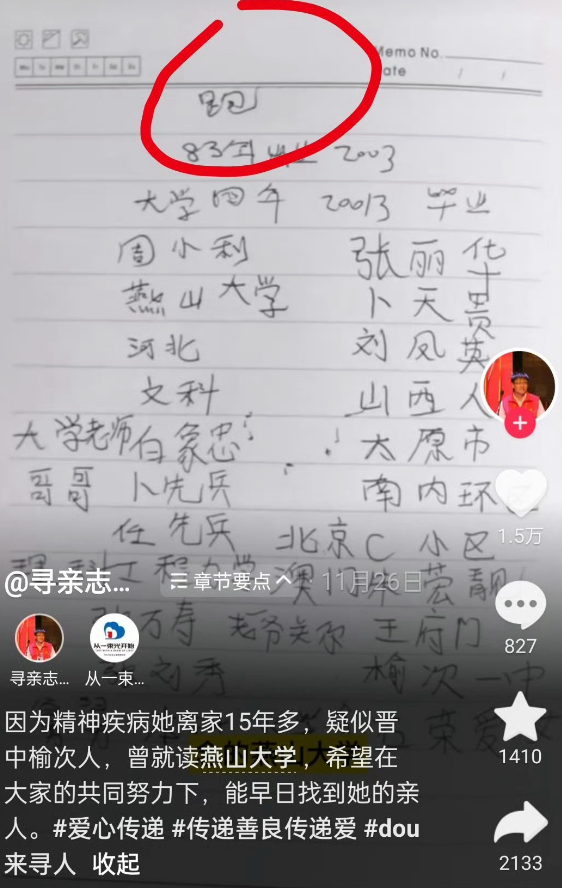 Memo No.
ate / /
跑
83年出生 2003
大学四年 20013 毕业
周小利 张丽华
燕山大学 卜天贵
河北 刘凤英
文科 山西人
大学老师白象忠 太原市
哥哥 卜先兵 南内环
任先兵 北京C小区
@寻亲志... 章节要点 · 11月26日
澳门
万寿 王府门
刘秀 榆次一中
荣爱
1.5万
827
1410
2133
寻亲志... 从一束...
从一束光开始
因为精神疾病她离家15年多，疑似晋
中榆次人，曾就读燕山大学，希望在
大家的共同努力下，能早日找到她的亲
人。#爱心传递 #传递善良传递爱 #dou
来寻人 收起